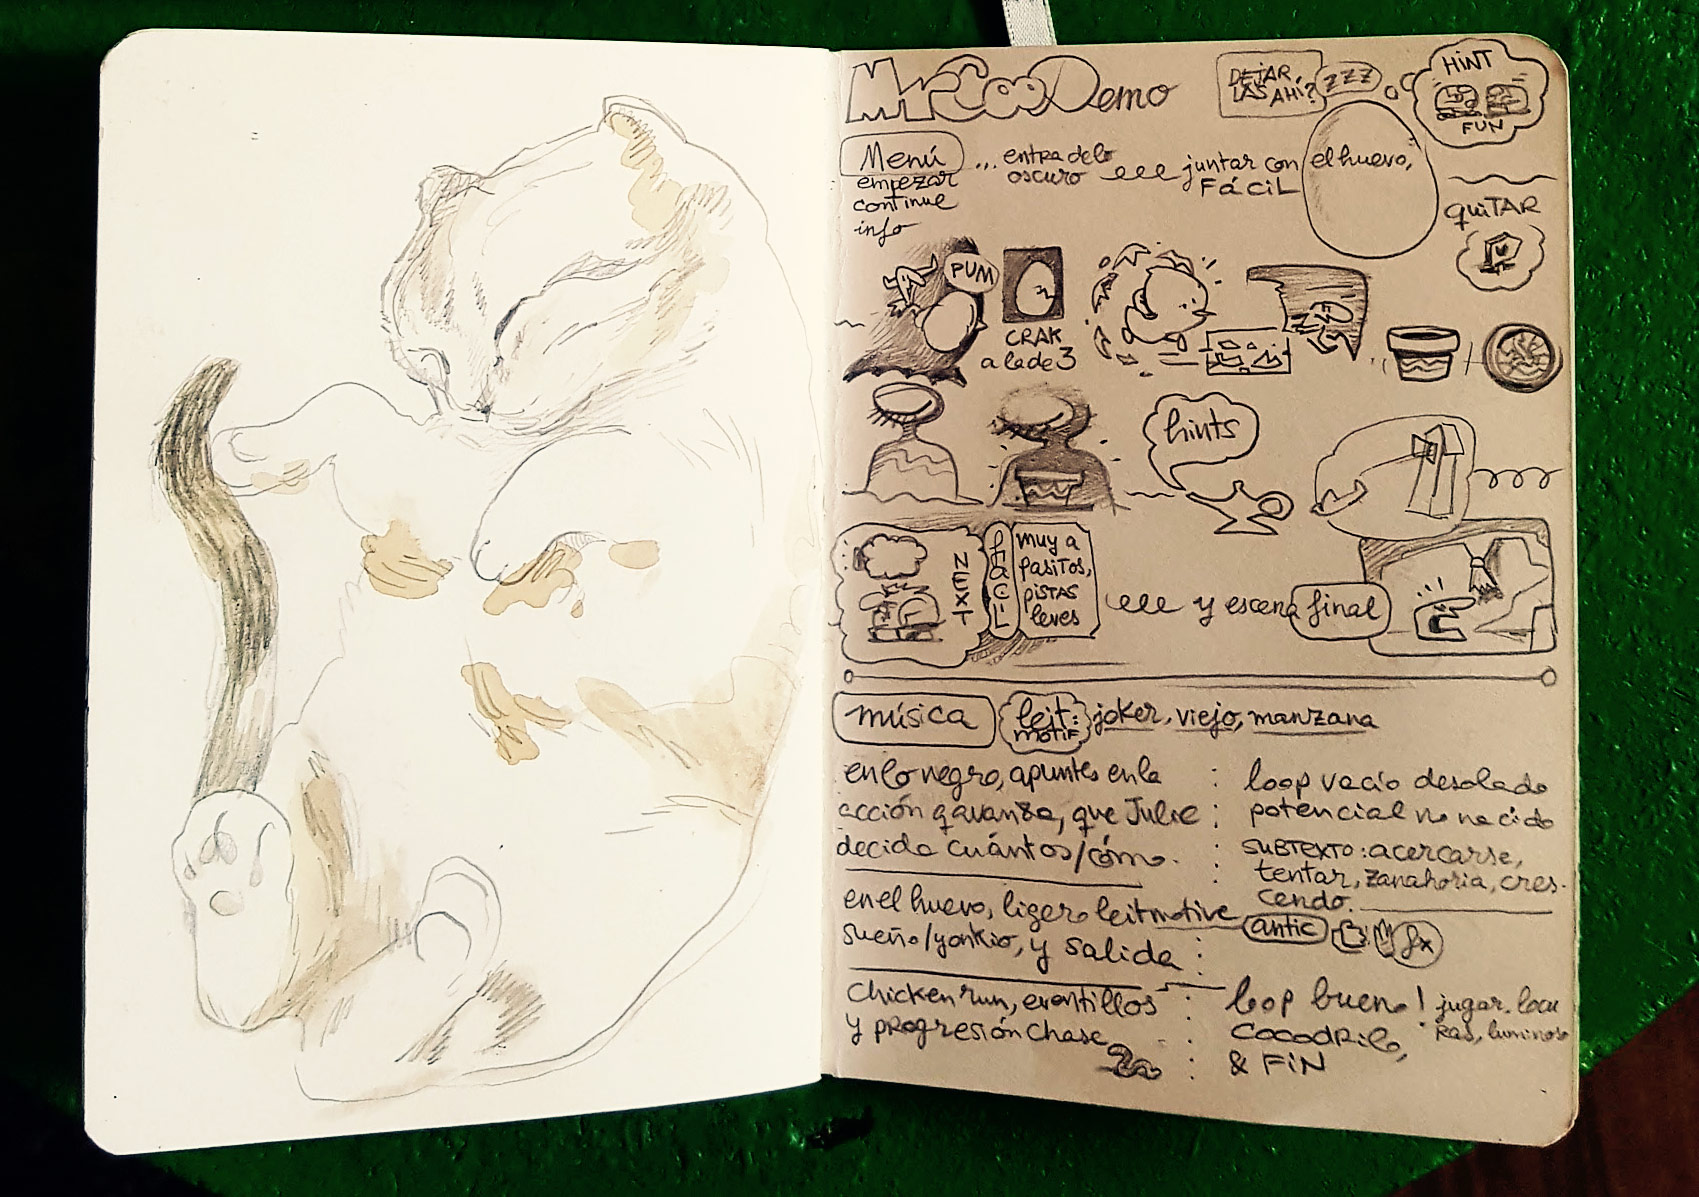 Mr Coo Demo
DEJAR
LAS AHÍ?
ZZZ
HINT
FUN
Menú
empezar
continue
info
... entra de lo
oscuro
juntar con el huevo,
FÁCIL
QUITAR
PUM
CRAK
a la de 3
hints
NEXT
fácil
muy a
pasitos,
pistas
leves
y escena final
música
leit:
motif
joker, viejo, manzana
en lo negro, apuntes en la
acción q avanza, que Julie
decida cuántos/cómo.
loop vacío desolado
potencial no nacido
SUBTEXTO: acercarse,
tentar, zanahoria, cres-
cendo.
en el huevo, ligero leitmotive
sueño/yonkio, y salida
antic
fx
chicken run, eventillos
y progresión chase
loop bueno! jugar, locu
ras, luminoso
COCODRILO,
& FIN